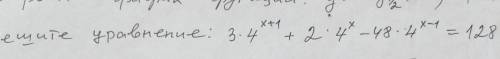 ешите уравнение: 3·4^{x+1} + 2·4^x − 48·4^{x−1} = 128